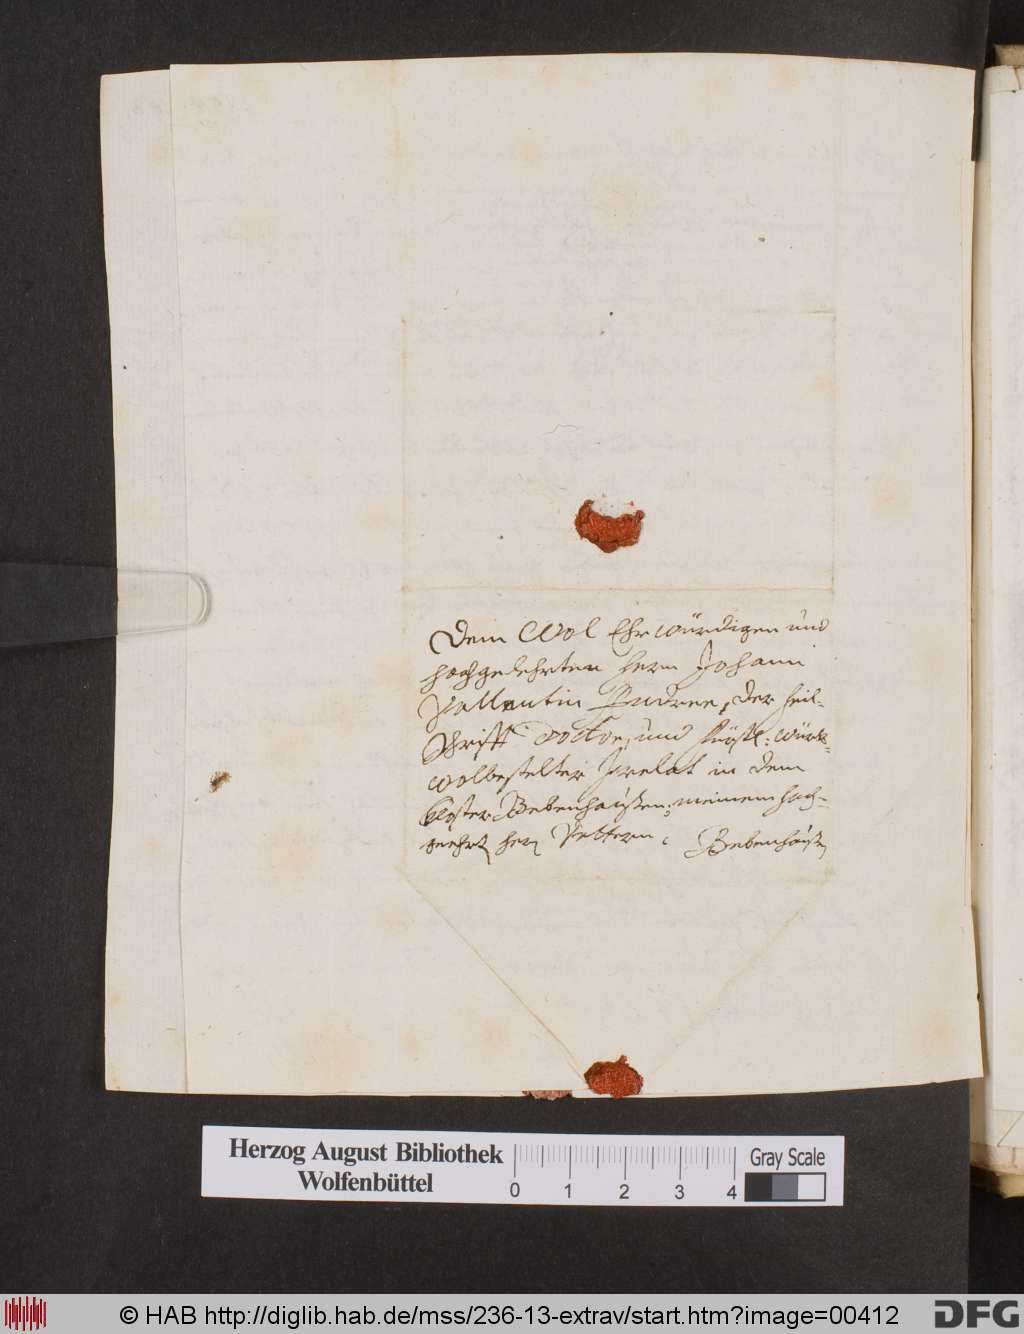 Dem Wol Ehrwürdigen und
hochgelehrten herrn Johann
Vallentin Andreae, der heil-
Schrifft Doctor, und fürstl: würt-
wolbestelter Prelat in dem
Kloster Bebenhaußen, meinem hoch-
geehrt hern Vettern,
Bebenhaußen
Herzog August Bibliothek
Wolfenbüttel
0 1 2 3 4
Gray Scale
© HAB http://diglib.hab.de/mss/236-13-extrav/start.htm?image=00412
DFG